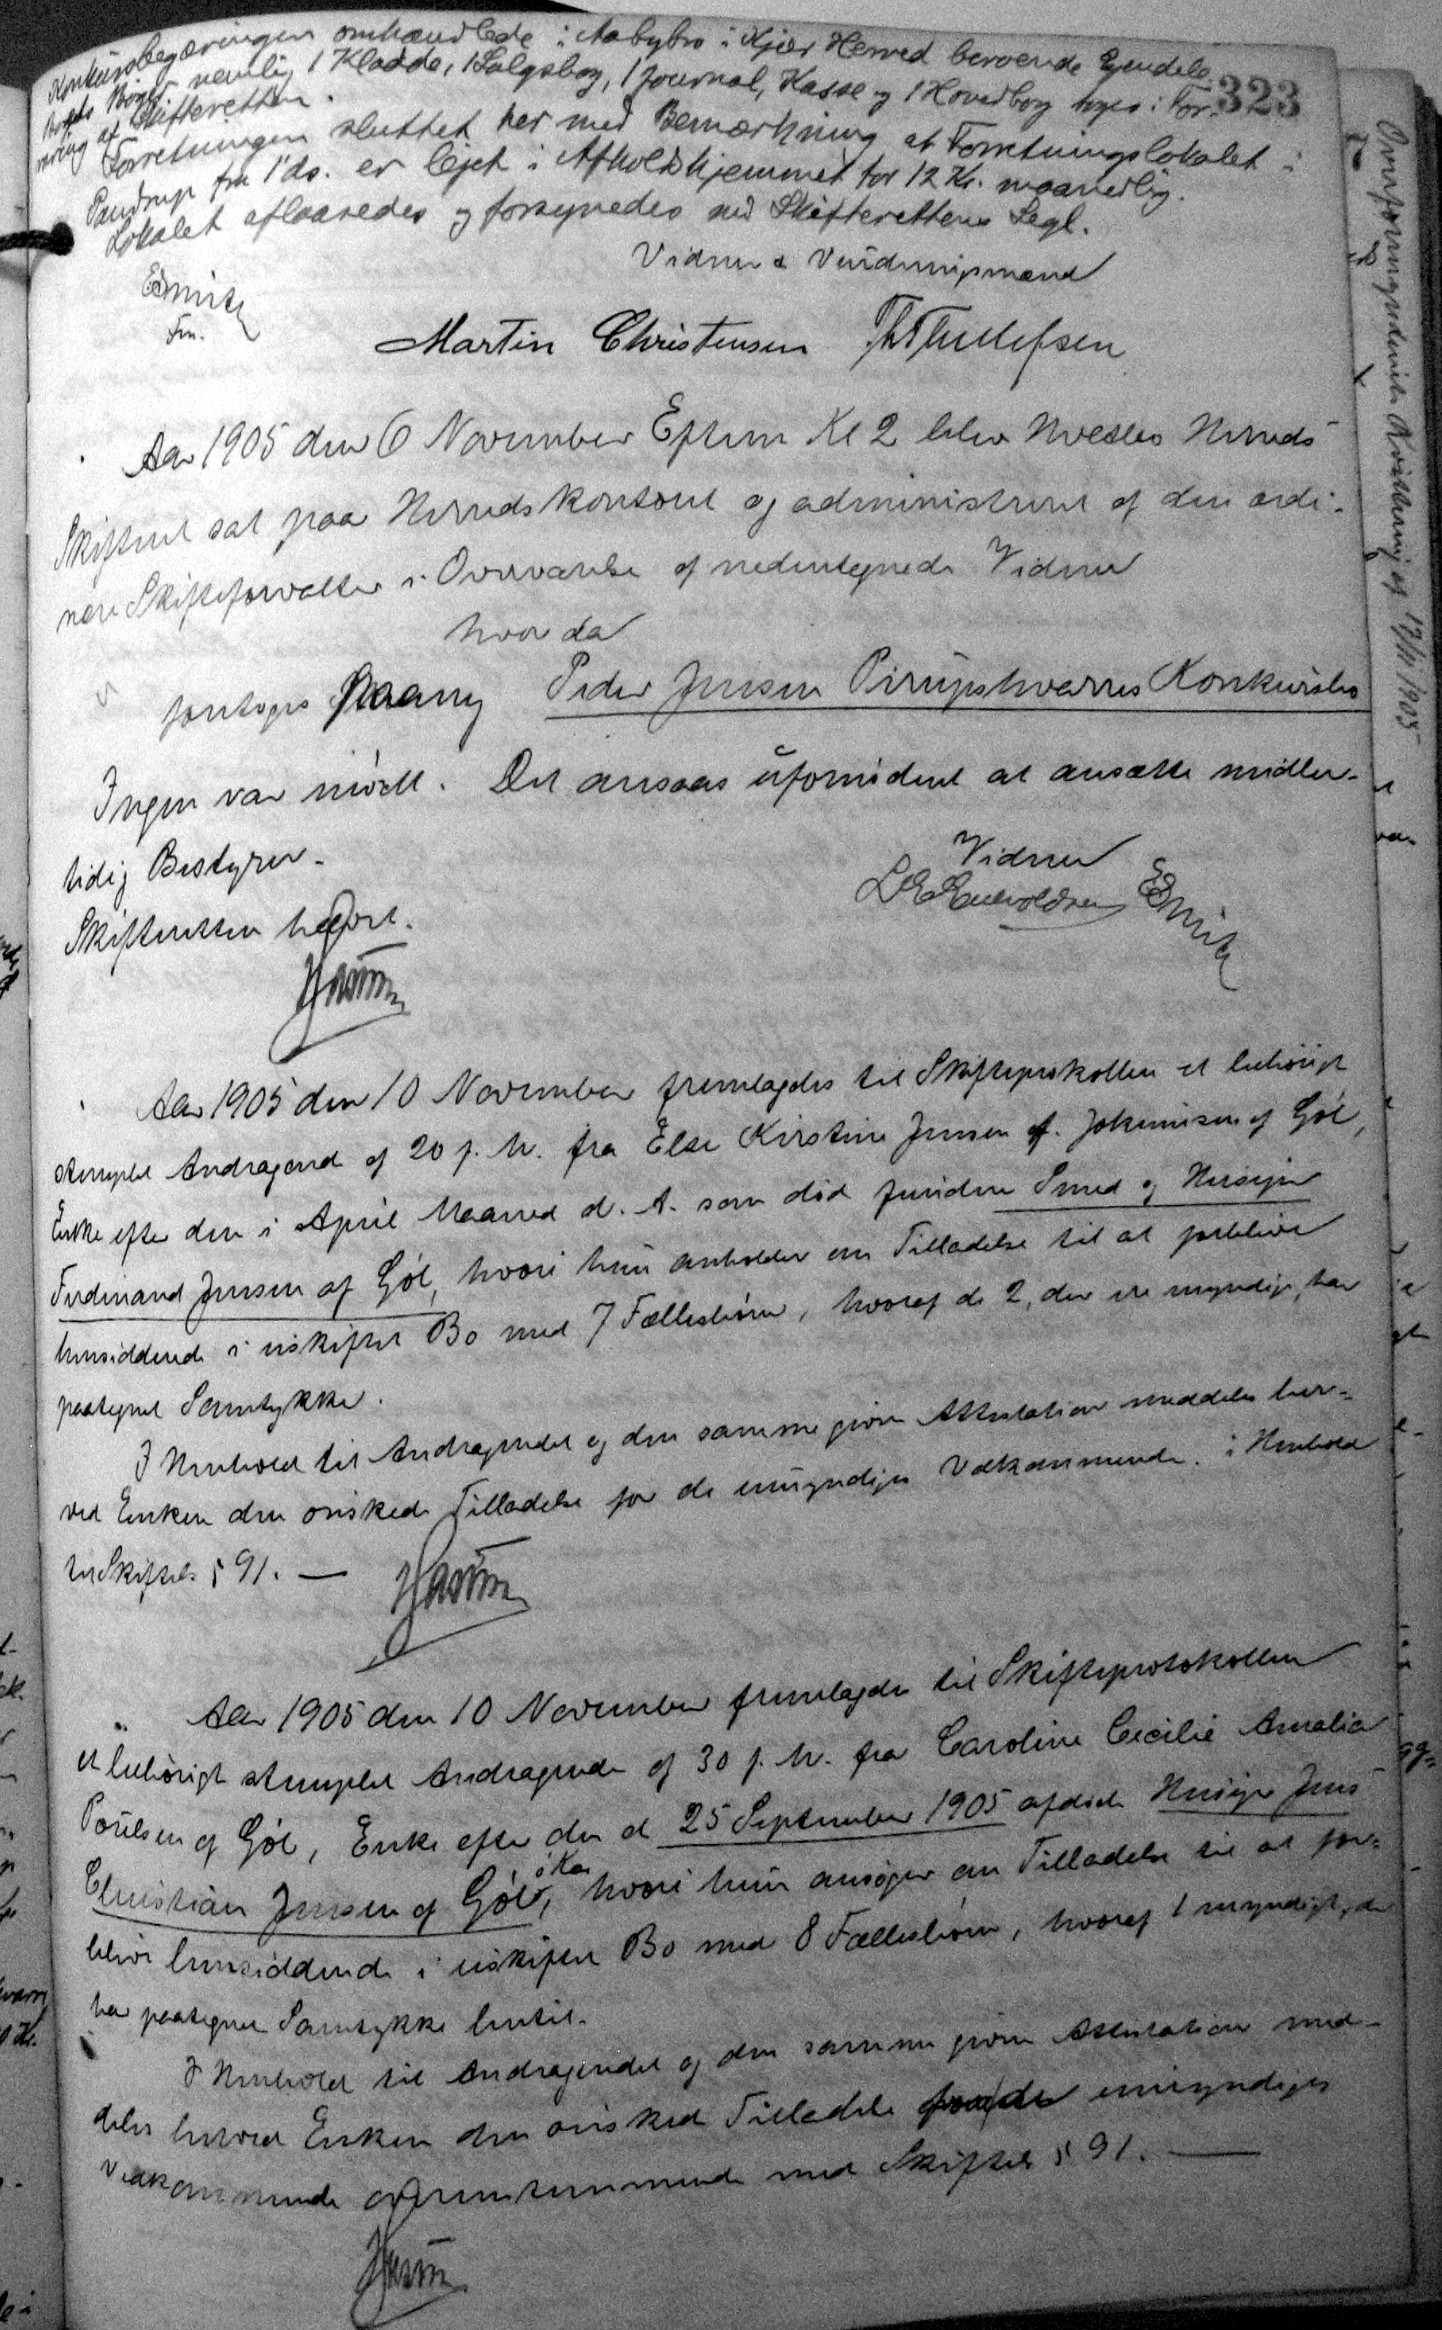 323
Konkursbegæringen omhandlede i Aabybro i Kjær Herred beroende Ejendele.
Boets Bøger nemlig 1 Kladde, 1 Salgsbog, 1 Journal, Kasse og 1 Hovedbog toges i For-
varing af Skifteretten.
Forretningen sluttet her med Bemærkning at Forretningslokalet i
Pandrup fra 1' ds. er lejet i Afholdshjemmet for 12 Kr. maanedlig.
Lokalet aflaasedes og forsynedes med Skifterettens Segl.
Vidner & Vurderingsmænd
Fm.
Martin Christensen
Aar 1905 den 6 November Efterm Kl 2 blev Hvetbo Herreds
Skifteret sat paa Herredskontoret og administreret af den ordi-
nære Skifteforvalter i Overværelse af nedentegnede Vidner
hvor da
foretoges Paany Peder Jensen Pirupshvarres Konkursbo
Ingen var mødt. Det ansaas ufornødent at ansætte midler-
tidig Bestyrer.
Vidner
Skifteretten hævet.
Aar 1905 den 10 November fremlagdes til Skifteprotokollen et behørigt
stemplet Andragende af 20 f. M. fra Else Kirstine Jensen f. Jokumsen af Gøl,
Enke efter den i April Maaned d. A. som død Smed og Husejer
Ferdinand Jensen af Gøl, hvori hun anholder om Tilladelse til at forblive
hensiddende i uskiftet Bo med 7 Fællesbørn, hvoraf de 2, der ere myndige, har
paategnet Samtykke.
I Henhold til Andragendet og den samme givne Attestation meddeles her-
ved Enken den ønskede Tilladelse for de umyndiges Vedkommende i Henhold
til Skiftel. § 91. —
Aar 1905 den 10 November fremlagdes til Skifteprotokollen
et behørigt stemplet Andragende af 30 f. M. fra Caroline Cecilie Amalia
Poulsen af Gøl, Enke efter den d 25 September 1905 afdøde Husejer Jens
Christian Jensen af Gøl, hvori hun ansøger om Tilladelse til at for-
blive hensiddende i uskiftet Bo med 8 Fællesbørn, hvoraf 1 myndigt, der
har paategnet Samtykke hertil.
I Henhold til Andragendet og den samme givne Attestation med-
deles herved Enken den ønskede Tilladelse for de umyndiges
Vedkommende overensstemmende med Skiftel. § 91. —